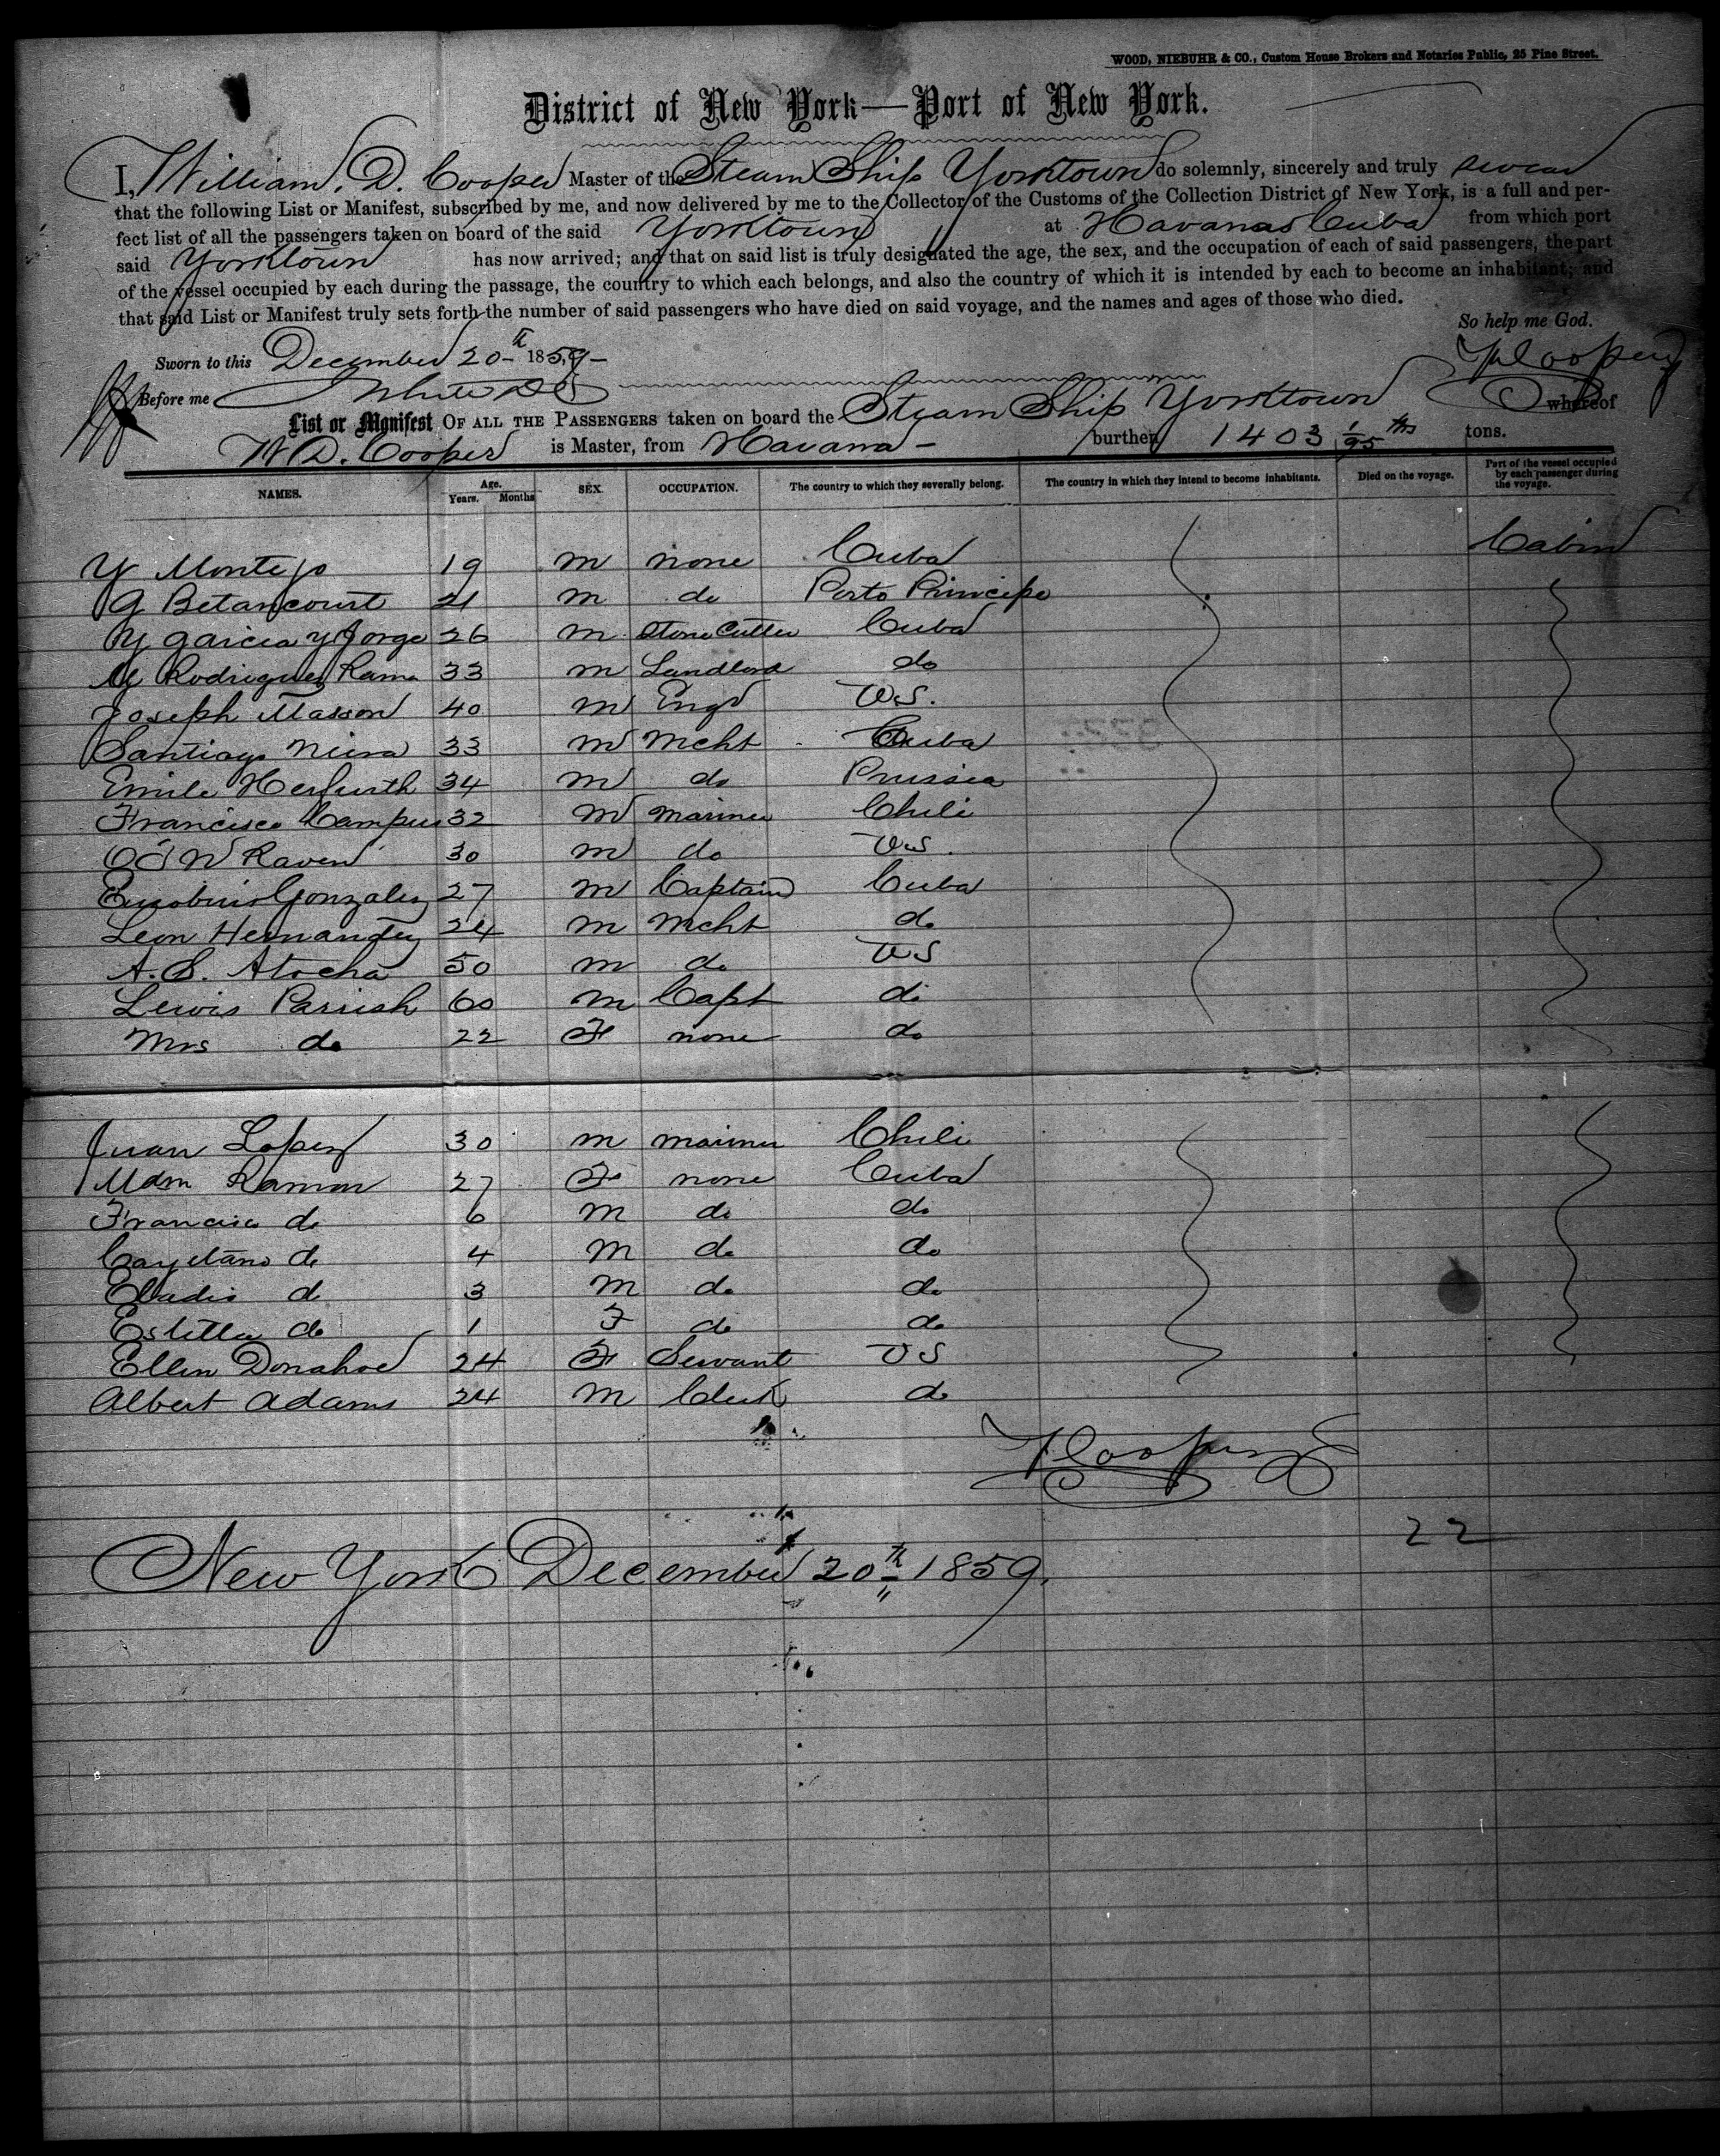 WOOD, NIEBUHR & CO., Custom House Brokers and Notaries Public, 25 Pine Street.
District of New York—Port of New York.
I, William. D. Cooper Master of the Steam Ship Yorktown do solemnly, sincerely and truly swear
that the following List or Manifest, subscribed by me, and now delivered by me to the Collector of the Customs of the Collection District of New York, is a full and per-
fect list of all the passengers taken on board of the said Yorktown at Havana Cuba from which port
said Yorktown has now arrived; and that on said list is truly designated the age, the sex, and the occupation of each of said passengers, the part
of the vessel occupied by each during the passage, the country to which each belongs, and also the country of which it is intended by each to become an inhabitant; and
that said List or Manifest truly sets forth the number of said passengers who have died on said voyage, and the names and ages of those who died.
So help me God.
Sworn to this December 20th 1859
WD Cooper
Before me White
List or Manifest OF ALL THE PASSENGERS taken on board the Steam Ship Yorktown whereof
W. D. Cooper is Master, from Havana burthen 1403 1/95 ths tons.
NAMES. Age. Years. Months SEX. OCCUPATION. The country to which they severally belong. The country in which they intend to become inhabitants. Died on the voyage. Part of the vessel occupied by each passenger during the voyage.
Y Montejo 19 m none Cuba Cabin
G Betancourt 21 m do Porto Principe
Y Garcia y Jorge 26 m Stone Cutter Cuba
M Rodriguez Rama 33 m Landlord do
Joseph Masson 40 m Engr US.
Santiago 33 m Mcht Cuba
Emile Herfurth 34 m do Prussia
Francisco Campus 32 m mariner Chili
W Raven 30 m do US.
Gonzalez 27 m Captain Cuba
Leon Hernandez 24 m Mcht do
A. S. Atocha 50 m do US
Lewis Parrish 60 m Capt do
Mrs do 22 F none do
Juan Lopez 30 m mariner Chili
Mdm Ramon 27 F none Cuba
Francisco do 6 m do do
Cayetano do 4 m do do
Eladio do 3 m do do
Estella do 1 F do do
Ellen Donahoe 24 F Servant US
Albert Adams 24 m Clerk do
WD Cooper
22
New York December 20th 1859.